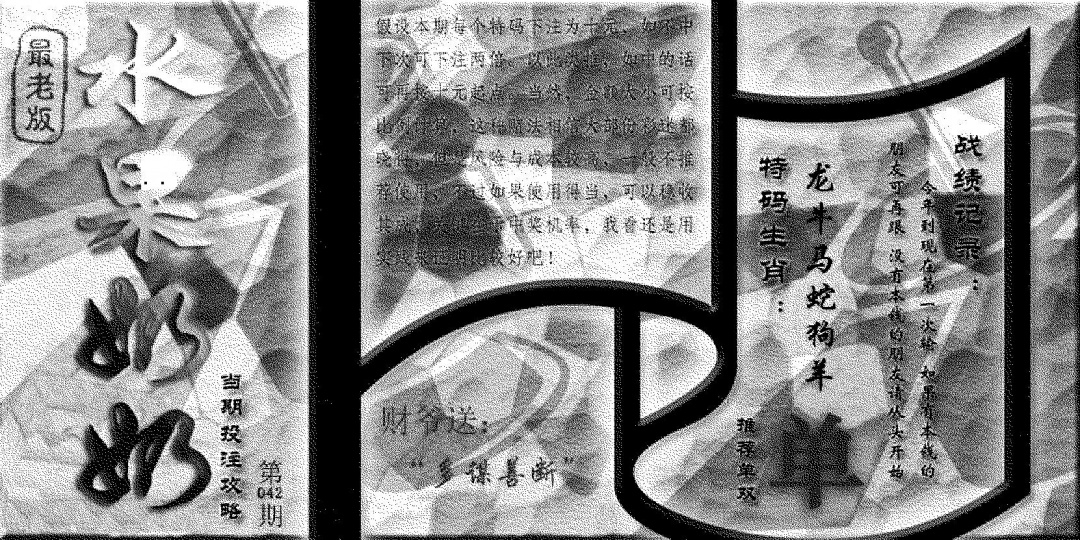 最老版
水果奶奶
当期投注攻略
第042期
假设本期每个特码下注为十元，如不中
下次可下注两倍，以此类推，如中的话
可再按十元起点，当然，金额大小可按
比例计算，这种赌法相信大部份彩迷都
晓得，但是风险与成本较高，一般不推
荐使用，不过如果使用得当，可以稳收
其成，
中奖机率，我看还是用
实战来证明比较好吧！
财爷送：
“多谋善断”
战绩记录：
今年到现在第一次输 如果有本钱的
朋友可再跟 没有本钱的朋友请从头开始
龙牛马蛇狗羊
特码生肖：
单
推荐单双